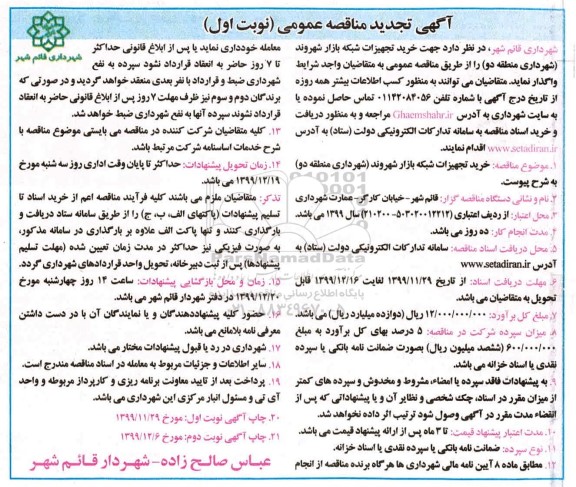 آگهی تجدید مناقصه عمومی (نوبت اول)
شهرداری قائم شهر
شهرداری قائم شهر، در نظر دارد جهت خرید تجهیزات شبکه بازار شهروند
(شهرداری منطقه دو) را از طریق مناقصه عمومی به متقاضیان واجد شرایط
واگذار نماید. متقاضیان می توانند به منظور کسب اطلاعات بیشتر همه روزه
از تاریخ درج آگهی با شماره تلفن ۰۱۱۴۲۰۸۴۰۵۶ تماس حاصل نموده یا
به سایت شهرداری به آدرس Ghaemshahr.ir مراجعه و به منظور دریافت
و خرید اسناد مناقصه به سامانه تدارکات الکترونیکی دولت (ستاد) به آدرس
www.setadiran.ir اقدام نمایند.
۱. موضوع مناقصه: خرید تجهیزات شبکه بازار شهروند (شهرداری منطقه دو)
به شرح پیوست.
۲. نام و نشانی دستگاه مناقصه گزار: قائم شهر - خیابان کارگر - عمارت شهرداری
۳. محل اعتبار: از ردیف اعتباری (۵۰۳۰۲۰۰۱۲۲۱۲-۲۱۰۲۰۰) سال ۱۳۹۹ می باشد.
۴. مدت انجام کار: ده روز می باشد.
۵. محل دریافت اسناد مناقصه: سامانه تدارکات الکترونیکی دولت (ستاد) به
آدرس www.setadiran.ir
۶. مهلت دریافت اسناد: از تاریخ ۱۳۹۹/۱۱/۲۹ لغایت ۱۳۹۹/۱۲/۱۶ قابل
تحویل به متقاضیان می باشد.
۷. مبلغ کل برآورد: ۱۲/۰۰۰/۰۰۰/۰۰۰ ریال (دوازده میلیارد ریال) می باشد.
۸. میزان سپرده شرکت در مناقصه: ۵ درصد بهای کل برآورد به مبلغ
۶۰۰/۰۰۰/۰۰۰ (ششصد میلیون ریال) بصورت ضمانت نامه بانکی یا سپرده
نقدی یا اسناد خزانه می باشد.
۹. به پیشنهادات فاقد سپرده یا امضاء، مشروط و مخدوش و سپرده های کمتر
از میزان مقرر در اسناد، چک شخصی و نظایر آن و یا پیشنهاداتی که پس از
انقضاء مدت مقرر در آگهی وصول شود ترتیب اثر داده نخواهد شد.
۱۰. مدت اعتبار پیشنهاد قیمت: تا ۳ ماه پس از ارائه پیشنهاد قیمت می باشد.
۱۱. نوع سپرده: ضمانت نامه بانکی یا سپرده نقدی یا اسناد خزانه.
۱۲. مطابق ماده ۸ آیین نامه مالی شهرداری ها هرگاه برنده مناقصه از انجام
معامله خودداری نماید یا پس از ابلاغ قانونی حداکثر
تا ۷ روز حاضر به انعقاد قرارداد نشود سپرده به نفع
شهرداری ضبط و قرارداد با نفر بعدی منعقد خواهد گردید و در صورتی که
برندگان دوم و سوم نیز ظرف مهلت ۷ روز پس از ابلاغ قانونی حاضر به انعقاد
قرارداد نشوند سپرده آنها به نفع شهرداری ضبط خواهد شد.
۱۳. کلیه متقاضیان شرکت کننده در مناقصه می بایستی موضوع مناقصه با
شرح خدمات اساسنامه شرکت مرتبط باشد.
۱۴. زمان تحویل پیشنهادات: حداکثر تا پایان وقت اداری روز سه شنبه مورخ
۱۳۹۹/۱۲/۱۹ می باشد.
تذکر: متقاضیان ملزم می باشند کلیه فرآیند مناقصه اعم از خرید اسناد تا
تسلیم پیشنهادات (پاکتهای الف، ب، ج) را از طریق سامانه ستاد دریافت و
بارگذاری کنند و تنها پاکت الف علاوه بر بارگذاری در سامانه مذکور،
به صورت فیزیکی نیز حداکثر در مدت زمان تعیین شده (مهلت تسلیم
پیشنهادها) پس از ثبت دبیرخانه، تحویل واحد قراردادهای شهرداری گردد.
۱۵. زمان و محل بازگشایی پیشنهادات: ساعت ۱۴ روز چهارشنبه مورخ
۱۳۹۹/۱۲/۲۰ در دفتر شهردار قائم شهر می باشد.
۱۶. حضور کلیه پیشنهاددهندگان و یا نمایندگان آن با در دست داشتن
معرفی نامه بلامانع می باشد.
۱۷. شهرداری در رد یا قبول پیشنهادات مختار می باشد.
۱۸. سایر اطلاعات و جزئیات مربوط به معامله در اسناد مناقصه مندرج است.
۱۹. پرداخت بعد از تایید معاونت برنامه ریزی و کارپرداز مربوطه و واحد
آی تی و مسئول انبار مرکزی این شهرداری می باشد.
۲۰. چاپ آگهی نوبت اول: مورخ ۱۳۹۹/۱۱/۲۹
۲۱. چاپ آگهی نوبت دوم: مورخ ۱۳۹۹/۱۲/۶
عباس صالح زاده - شهردار قائم شهر